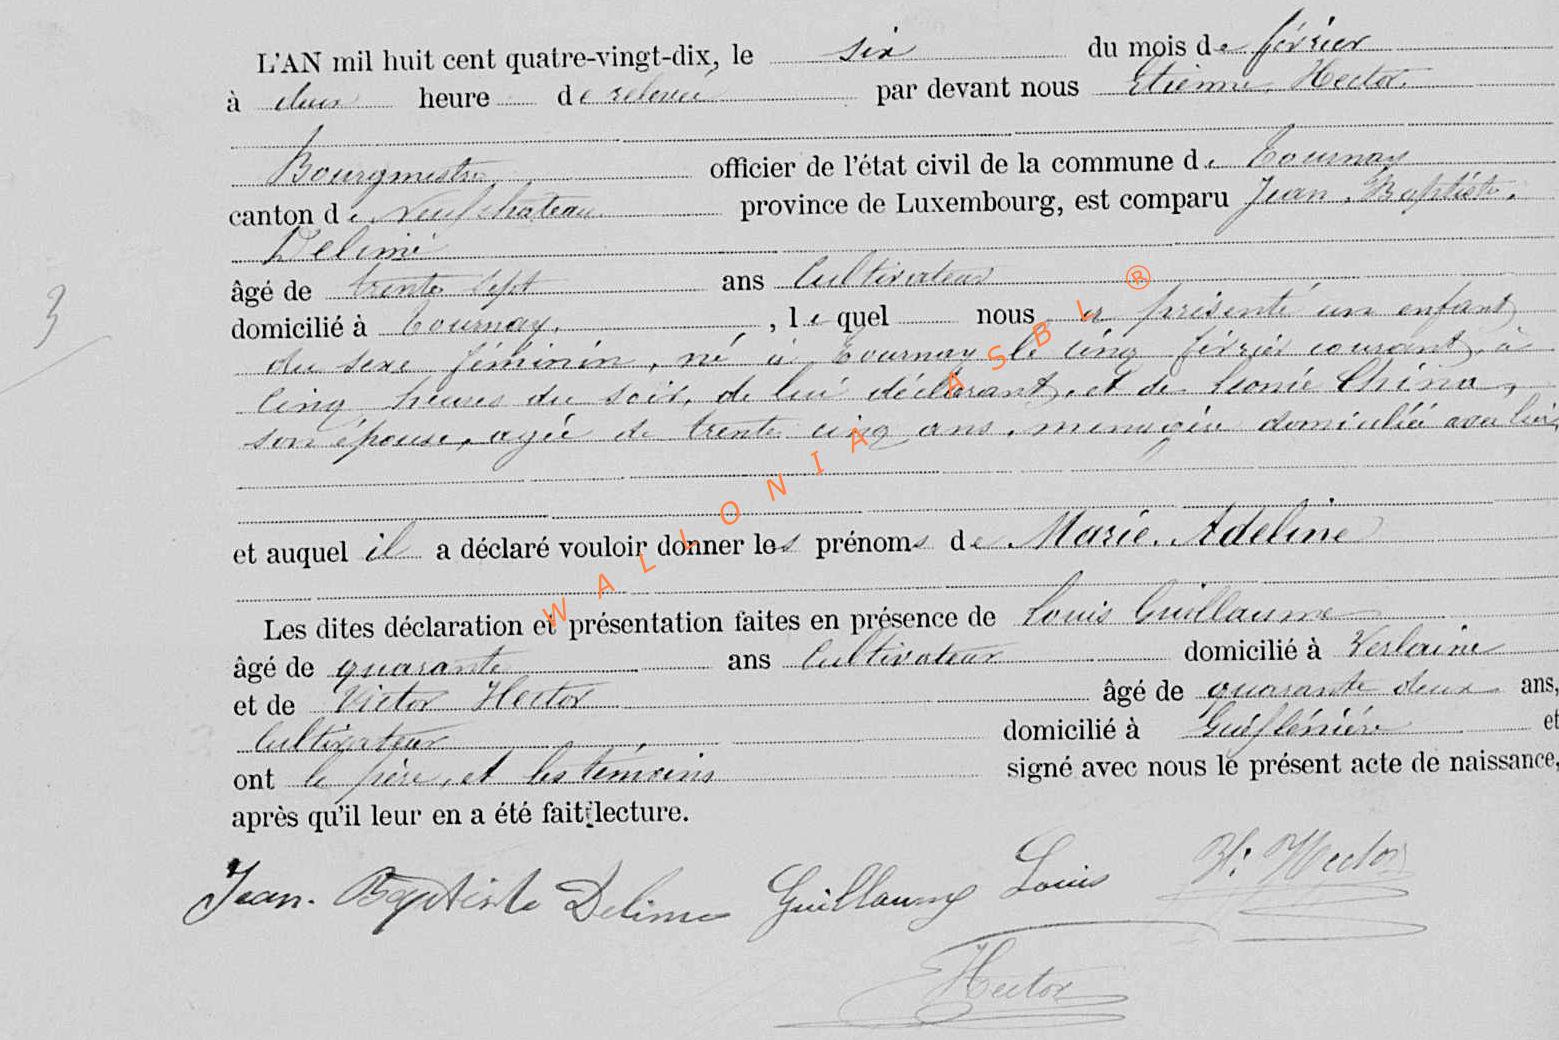 L'AN mil huit cent quatre-vingt-dix, le six du mois de février
à deux heure de relevée par devant nous Etienne Hector.
Bourgmestre officier de l'état civil de la commune de Tournay
canton de Neufchateau province de Luxembourg, est comparu Jean. Baptiste.
Delimé
âgé de trente sept ans Cultivateur
domicilié à Tournay. , le quel nous a présenté un enfant
du sexe féminin, né à Tournay le cinq février courant, à
cinq heures du soir, de lui déclarant, et de Léonie China,
son épouse, agée de trente cinq ans, menagère domiciliée avec lui,
et auquel il a déclaré vouloir donner les prénoms de Marie. Adeline
Les dites déclaration et présentation faites en présence de Louis Guillaume
âgé de quarante ans Cultivateur domicilié à Verlaine
et de Victor Hector âgé de quarante deux ans,
Cultivateur domicilié à et
ont le père, et les témoins signé avec nous le présent acte de naissance,
après qu'il leur en a été fait lecture.
Jean. Baptiste Delime Guillaume Louis V. Hector
Hector
3
WALLONIA ASBL ®